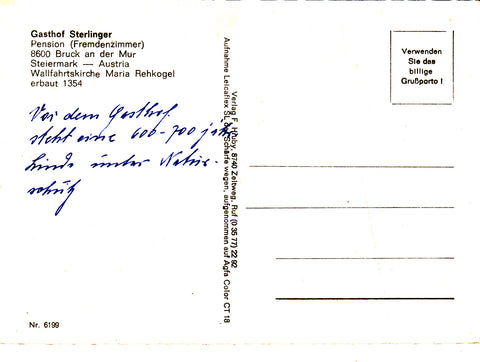 Gasthof Sterlinger
Pension (Fremdenzimmer)
8600 Bruck an der Mur
Steiermark — Austria
Wallfahrtskirche Maria Rehkogel
erbaut 1354
Vor dem Gasthof
steht eine 600-700 jähr
Linde unter Natur-
schutz
Nr. 6199
Verlag F. Hruby, 8740 Zeltweg, Ruf (0 35 77) 22 92
Aufnahme Leicaflex SL der Schärfe wegen, aufgenommen auf Agfa Color CT 18
Verwenden
Sie das
billige
Grußporto !